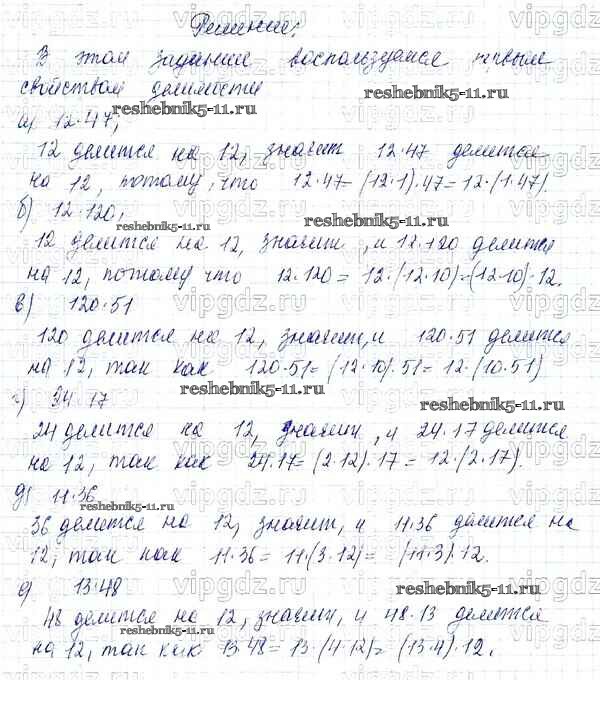 Решение:
В этом задании воспользуемся первым
свойством делимости
а) 12·47;
12 делится на 12, значит 12·47 делится
на 12, потому, что 12·47=(12·1)·47=12·(1·47).
б) 12·120;
12 делится на 12, значит, и 12·120 делится
на 12, потому что 12·120=12·(12·10)=(12·10)·12.
в) 120·51
120 делится на 12, значит, и 120·51 делится
на 12, так как 120·51=(12·10)·51=12·(10·51)
г) 34·17
24 делится на 12, значит, и 24·17 делится
на 12, так как 24·17=(2·12)·17=12·(2·17).
д) 11·36
36 делится на 12, значит, и 11·36 делится на
12, так как 11·36=11·(3·12)=(11·3)·12.
е) 13·48
48 делится на 12, значит, и 48·13 делится
на 12, так как 13·48=13·(4·12)=(13·4)·12.
reshebnik5-11.ru
reshebnik5-11.ru
reshebnik5-11.ru
reshebnik5-11.ru
reshebnik5-11.ru
reshebnik5-11.ru
reshebnik5-11.ru
reshebnik5-11.ru
reshebnik5-11.ru